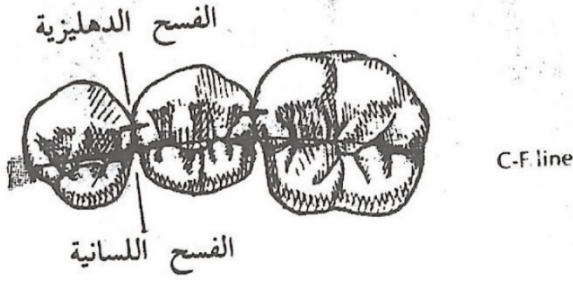 الفسح الدهليزية
C-F.line
الفسح اللسانية